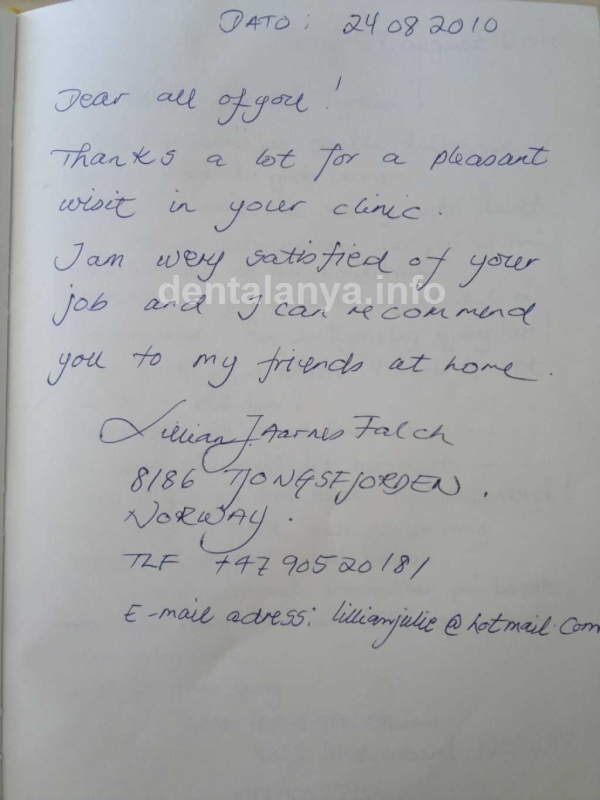 DATO: 24 08 2010
Dear all of you!
Thanks a lot for a pleasant
wisit in your clinic.
I am wery satisfied of your
dentalanya.info
job and I can recommend
you to my friends at home.
Lillian J. Aarnes Falch
8186 TJONGSFJORDEN.
NORWAY.
TLF +47 905 20 181
E-mail adress: lillianjulie@hotmail.com